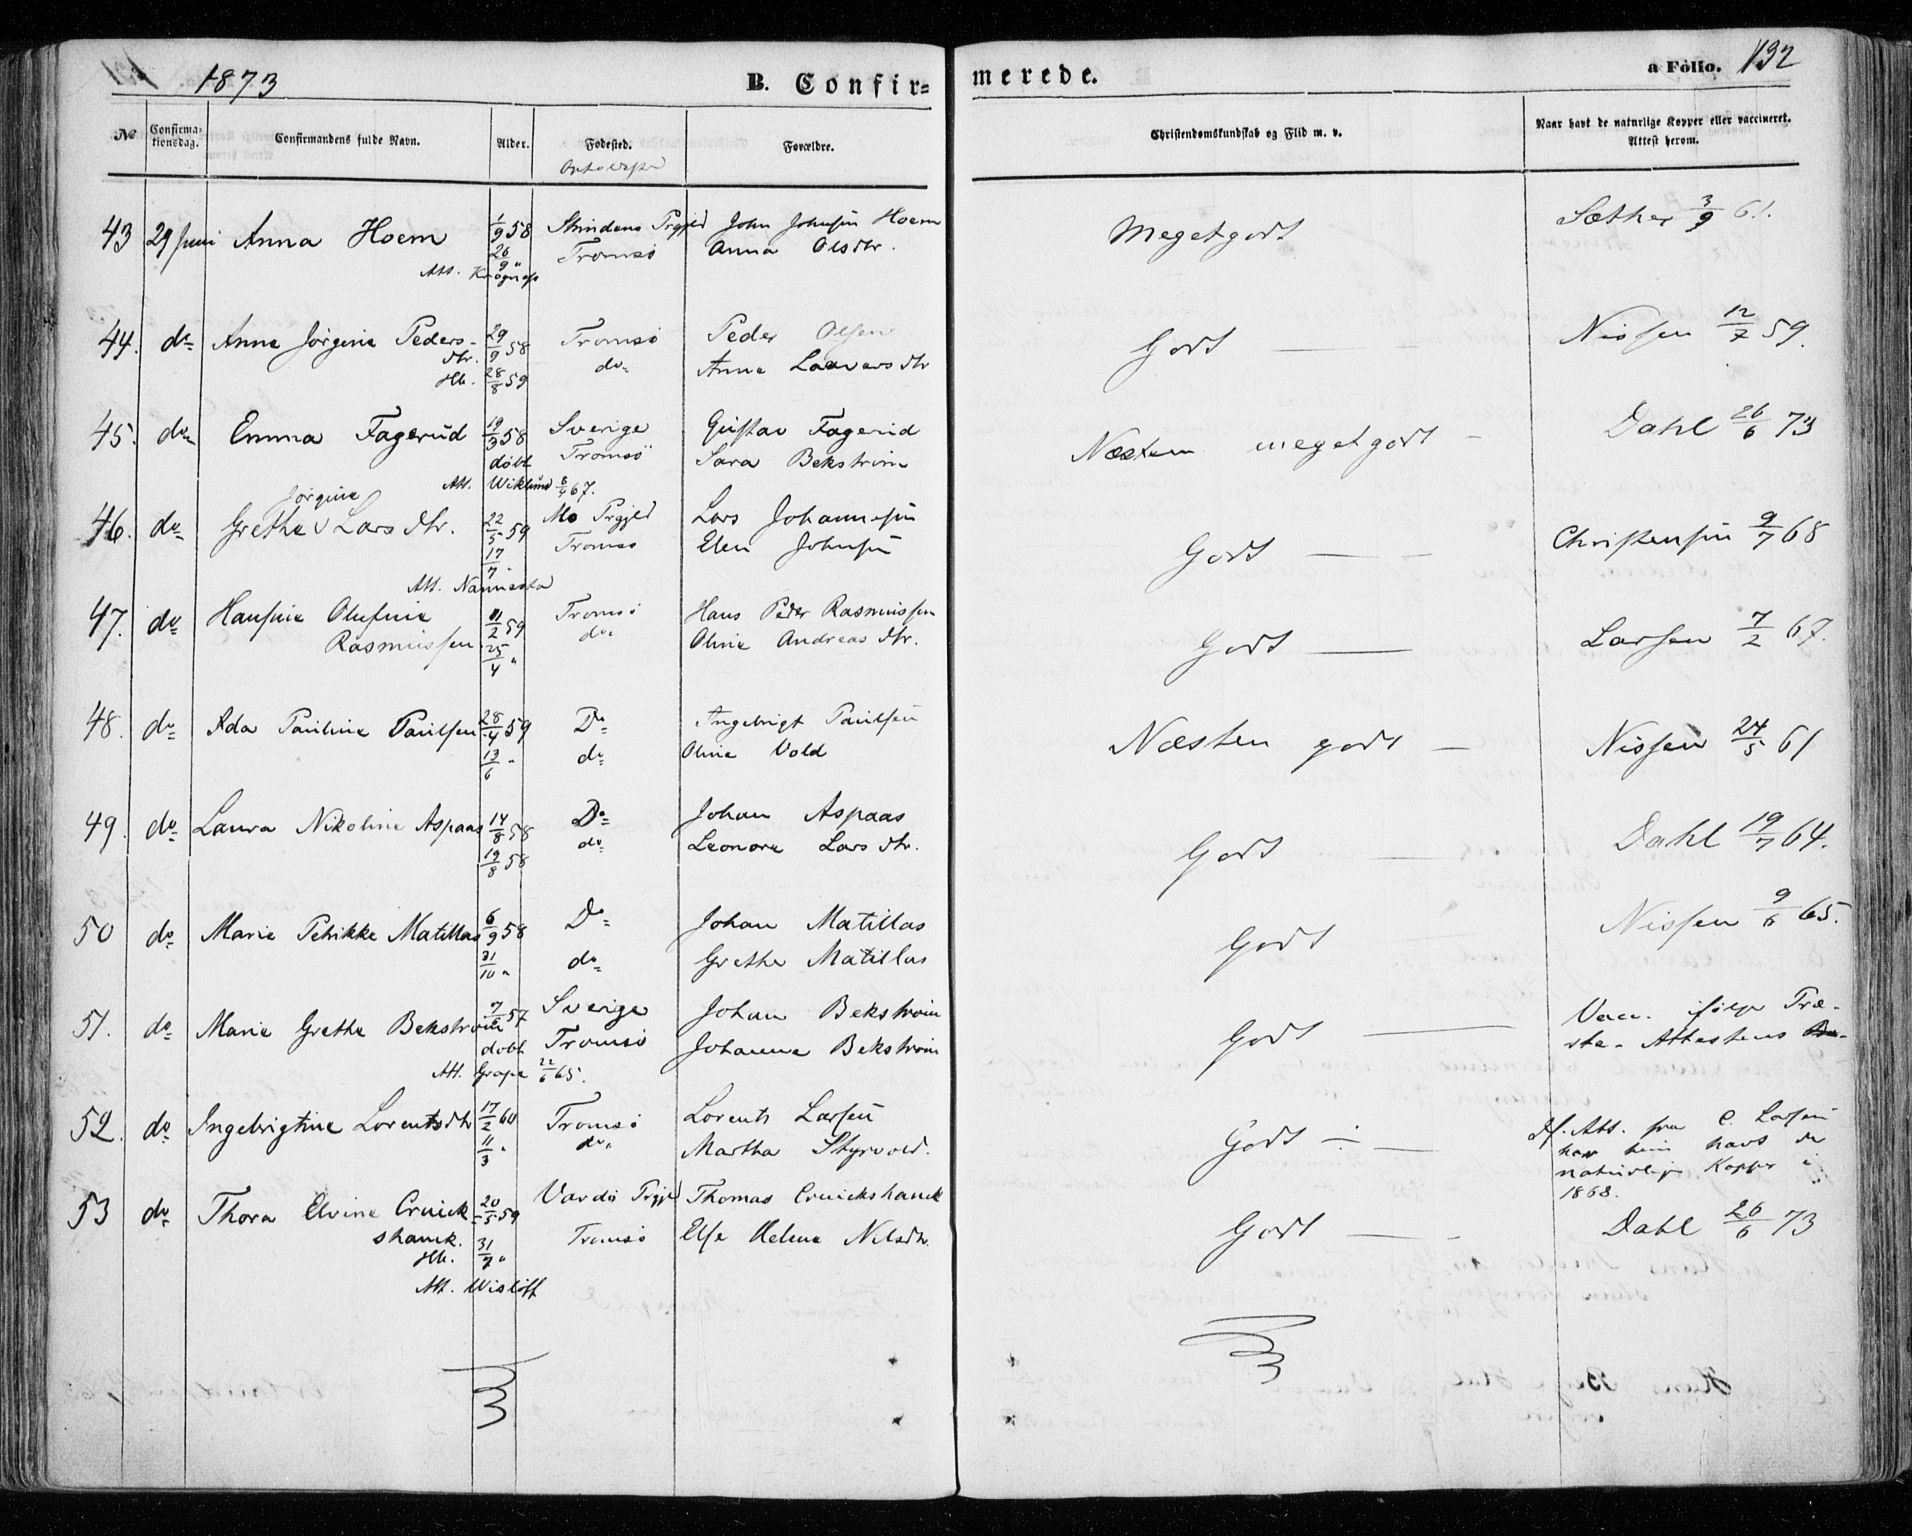 1873
B. Confir-
merede.
a Folio. 132
No
Confirma-
tionsdag.
Confirmandens fulde Navn.
Alder.
Fødested.
Forældre.
Christendomskundskab og Flid m. v.
Naar havt de naturlige Kopper eller vaccineret.
Attest herom.
43 29 Juni Anna Hoem 1/9 58 Prgjld John Johnsen Hoem Megetgodt Sæther 3/9 61.
26/9 " Tromsø Anna Olsdtr.
Att.
44. do Anne Jørgine Peders- 29/9 58 Tromsø Peder Olsen Godt Nissen 12/7 59.
dtr. do Anne
Hb. 28/8 59
45. do Emma Fagerud 19/3 58 Sverige Gustav Fagerud Næsten megetgodt Dahl 26/6 73
døbt Tromsø Sara Bekstrøm
Att. Wiklund 8/4 67.
Jørgine
46. do Grethe V Larsdtr. 22/5 59 Mo Prgjld Lars Johannesen Godt Christensen 9/7 68
17/7 " Tromsø Elen Johnsen
Att. Nannestad
47. do Hansine Olufine 11/2 59 Tromsø Hans Peder Rasmussen Godt Larsen 7/2 67.
Rasmussen 25/4 " do Oline Andreasdtr.
48. do Ada Pauline Paulsen 28/4 59 Do Ingebrigt Paulsen Næsten godt Nissen 24/5 61
13/6 " do Oline Vold
49. do Laura Nikoline Aspaas 14/8 58 Do Johan Aspaas Godt Dahl 19/7 64.
19/8 58 do Leonore Larsdtr.
50 do Marie Petrikke Matillas 6/9 58 Do Johan Matillas Godt Nissen 9/6 65.
31/10 " do Grethe Matillas
51. do Marie Grethe Bekstrøm 7/12 57 Sverige Johan Bekstrøm Godt Vacc. ifølge Præ-
døbt Tromsø Johanna Bekstrøm ste-Attestens
Att. Grape 22/6 65.
52. do Ingebrigtine Lorentsdtr 17/2 60 Tromsø Lorents Larsen Godt Att. fra C. Larsen
11/3 " do Martha Styrvold. har hun havt de
naturlige Kopper i
1868.
53 do Thora Elvine Cruick- 20/5 59 Vardø Prgjld Thomas Cruickshanck Godt Dahl 26/6 73
shanck. Tromsø Else Helene Nilsdtr.
Hb. 31/7 "
Att. Wisløff